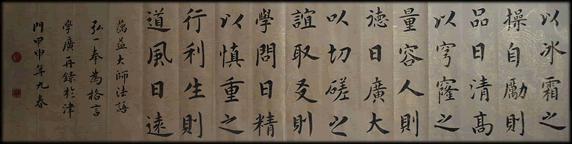 以冰霜之
操自勵則
品日清高
以穹窿之
量容人則
德日廣大
以切磋之
誼取友則
學問日精
以慎重之
行利生則
道風日遠
蕅益大師法語
弘一奉為格言
學廣再錄於津
門甲申年九春